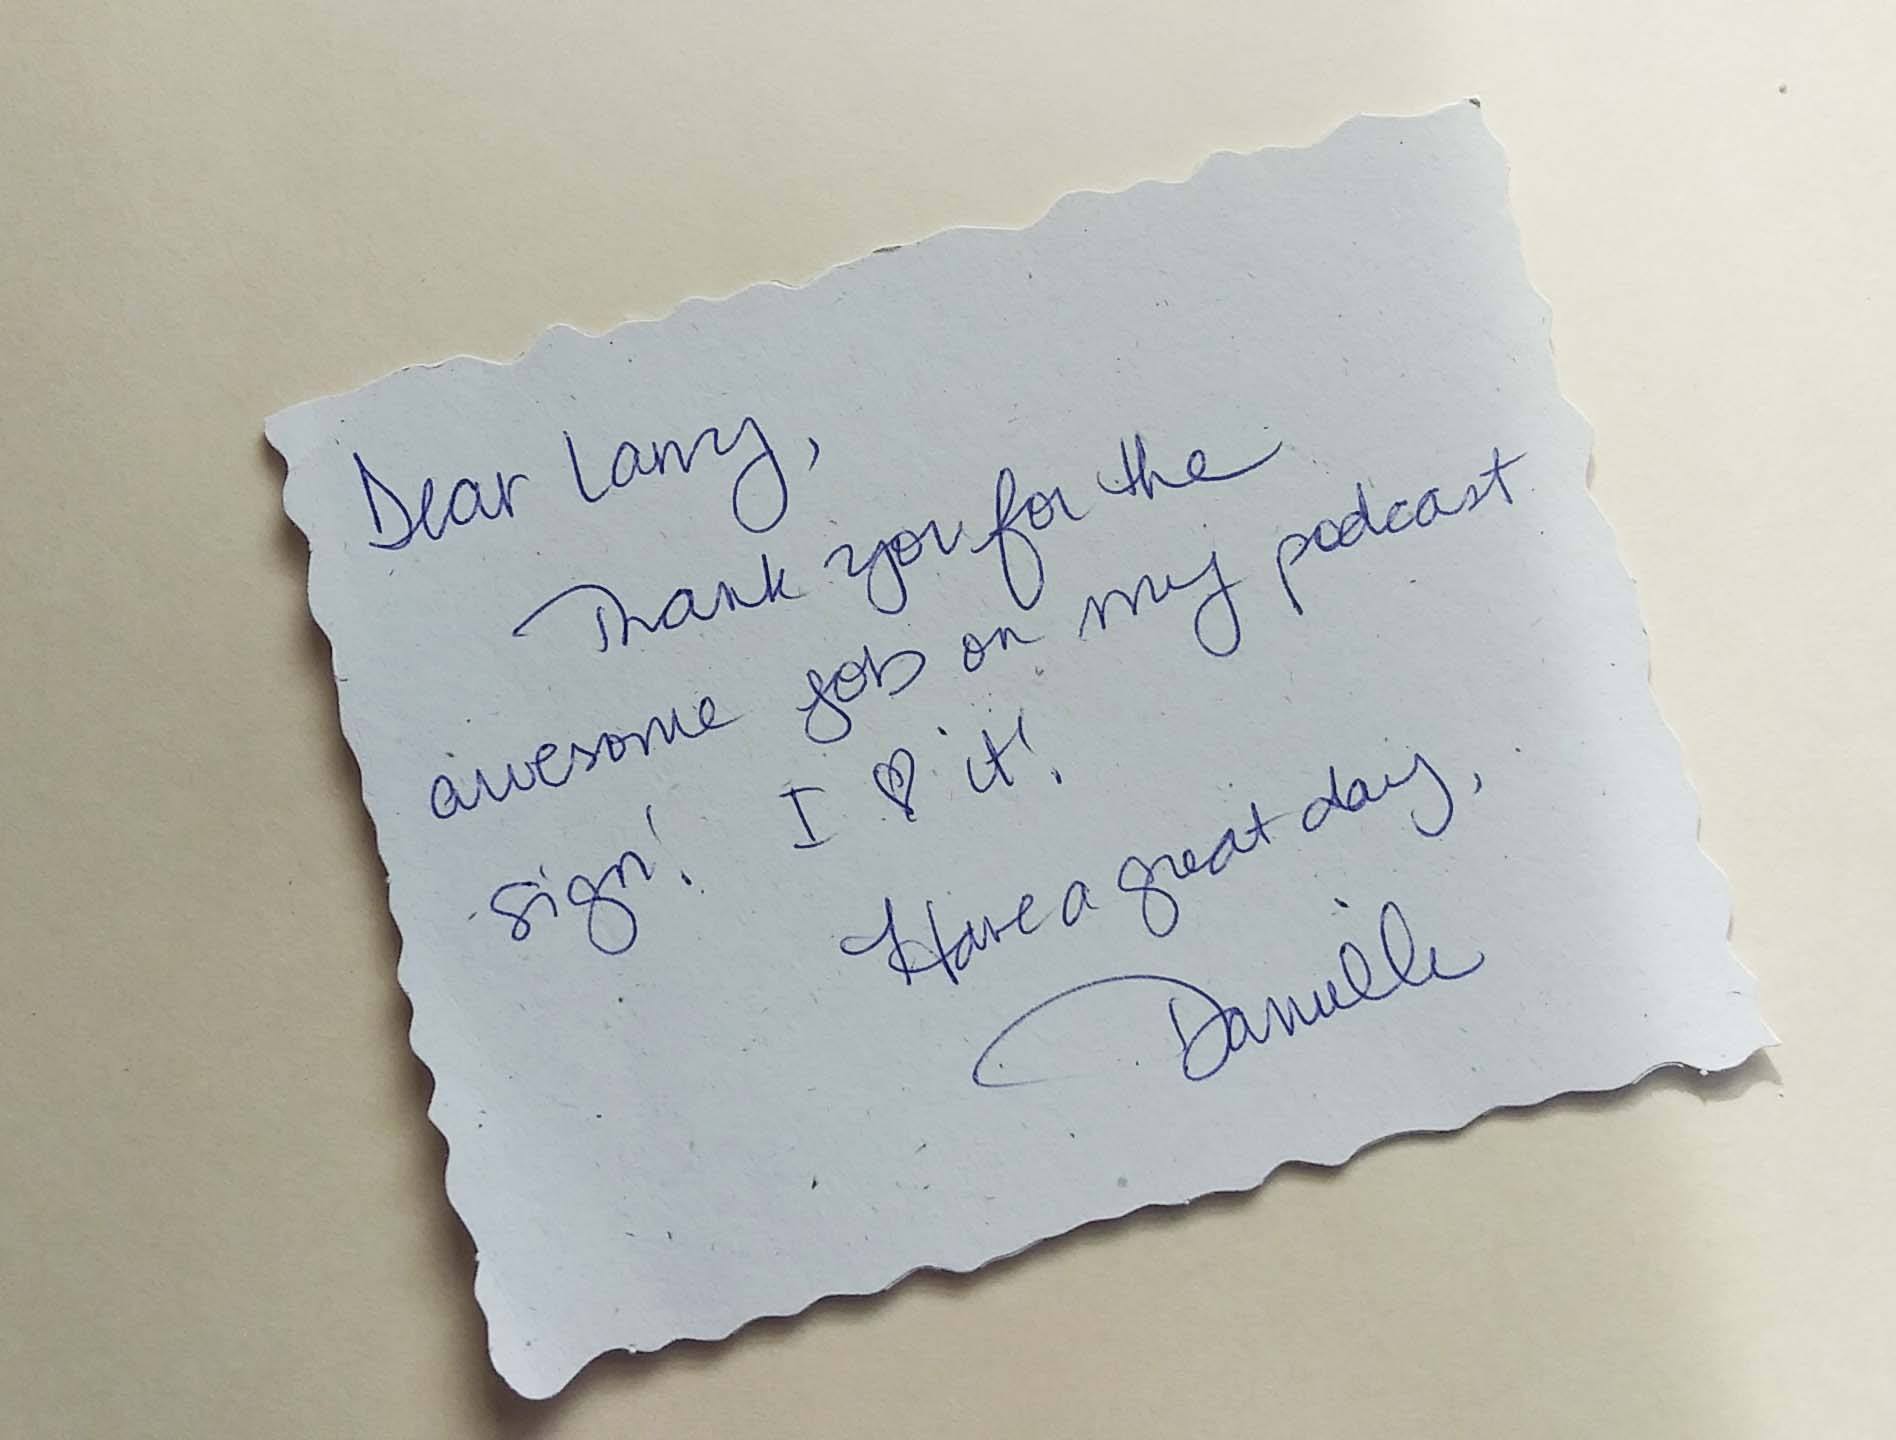 Dear Larry,
Thank you for the
awesome job on my podcast
sign! I ♡ it!
Have a great day,
Danielle